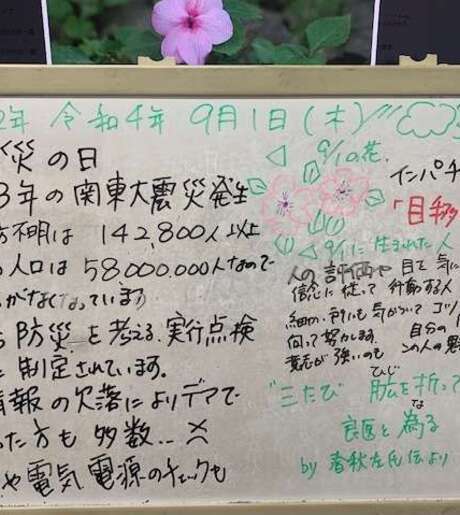 2年 令和4年 9月1日(木)
災の日
3年の関東大震災発生
方不明は 142,800人以上
の人口は 58000,000人なので
がなくなっています
防災を考える、実行点検
に制定されています。
情報の欠落によりデマで
った方も多数...
や電気電源のチェックも
9/1の花
インパチ
「目移
9/1に生まれた人
人の評価や目を気に
信念に従って行動する人
細かい所にも気がついてコツ
向って努力します。自分の
責任が強いのもこの人の魅
"三たび肱を折って
ひじ
良医と為る
な
by 春秋左氏伝より